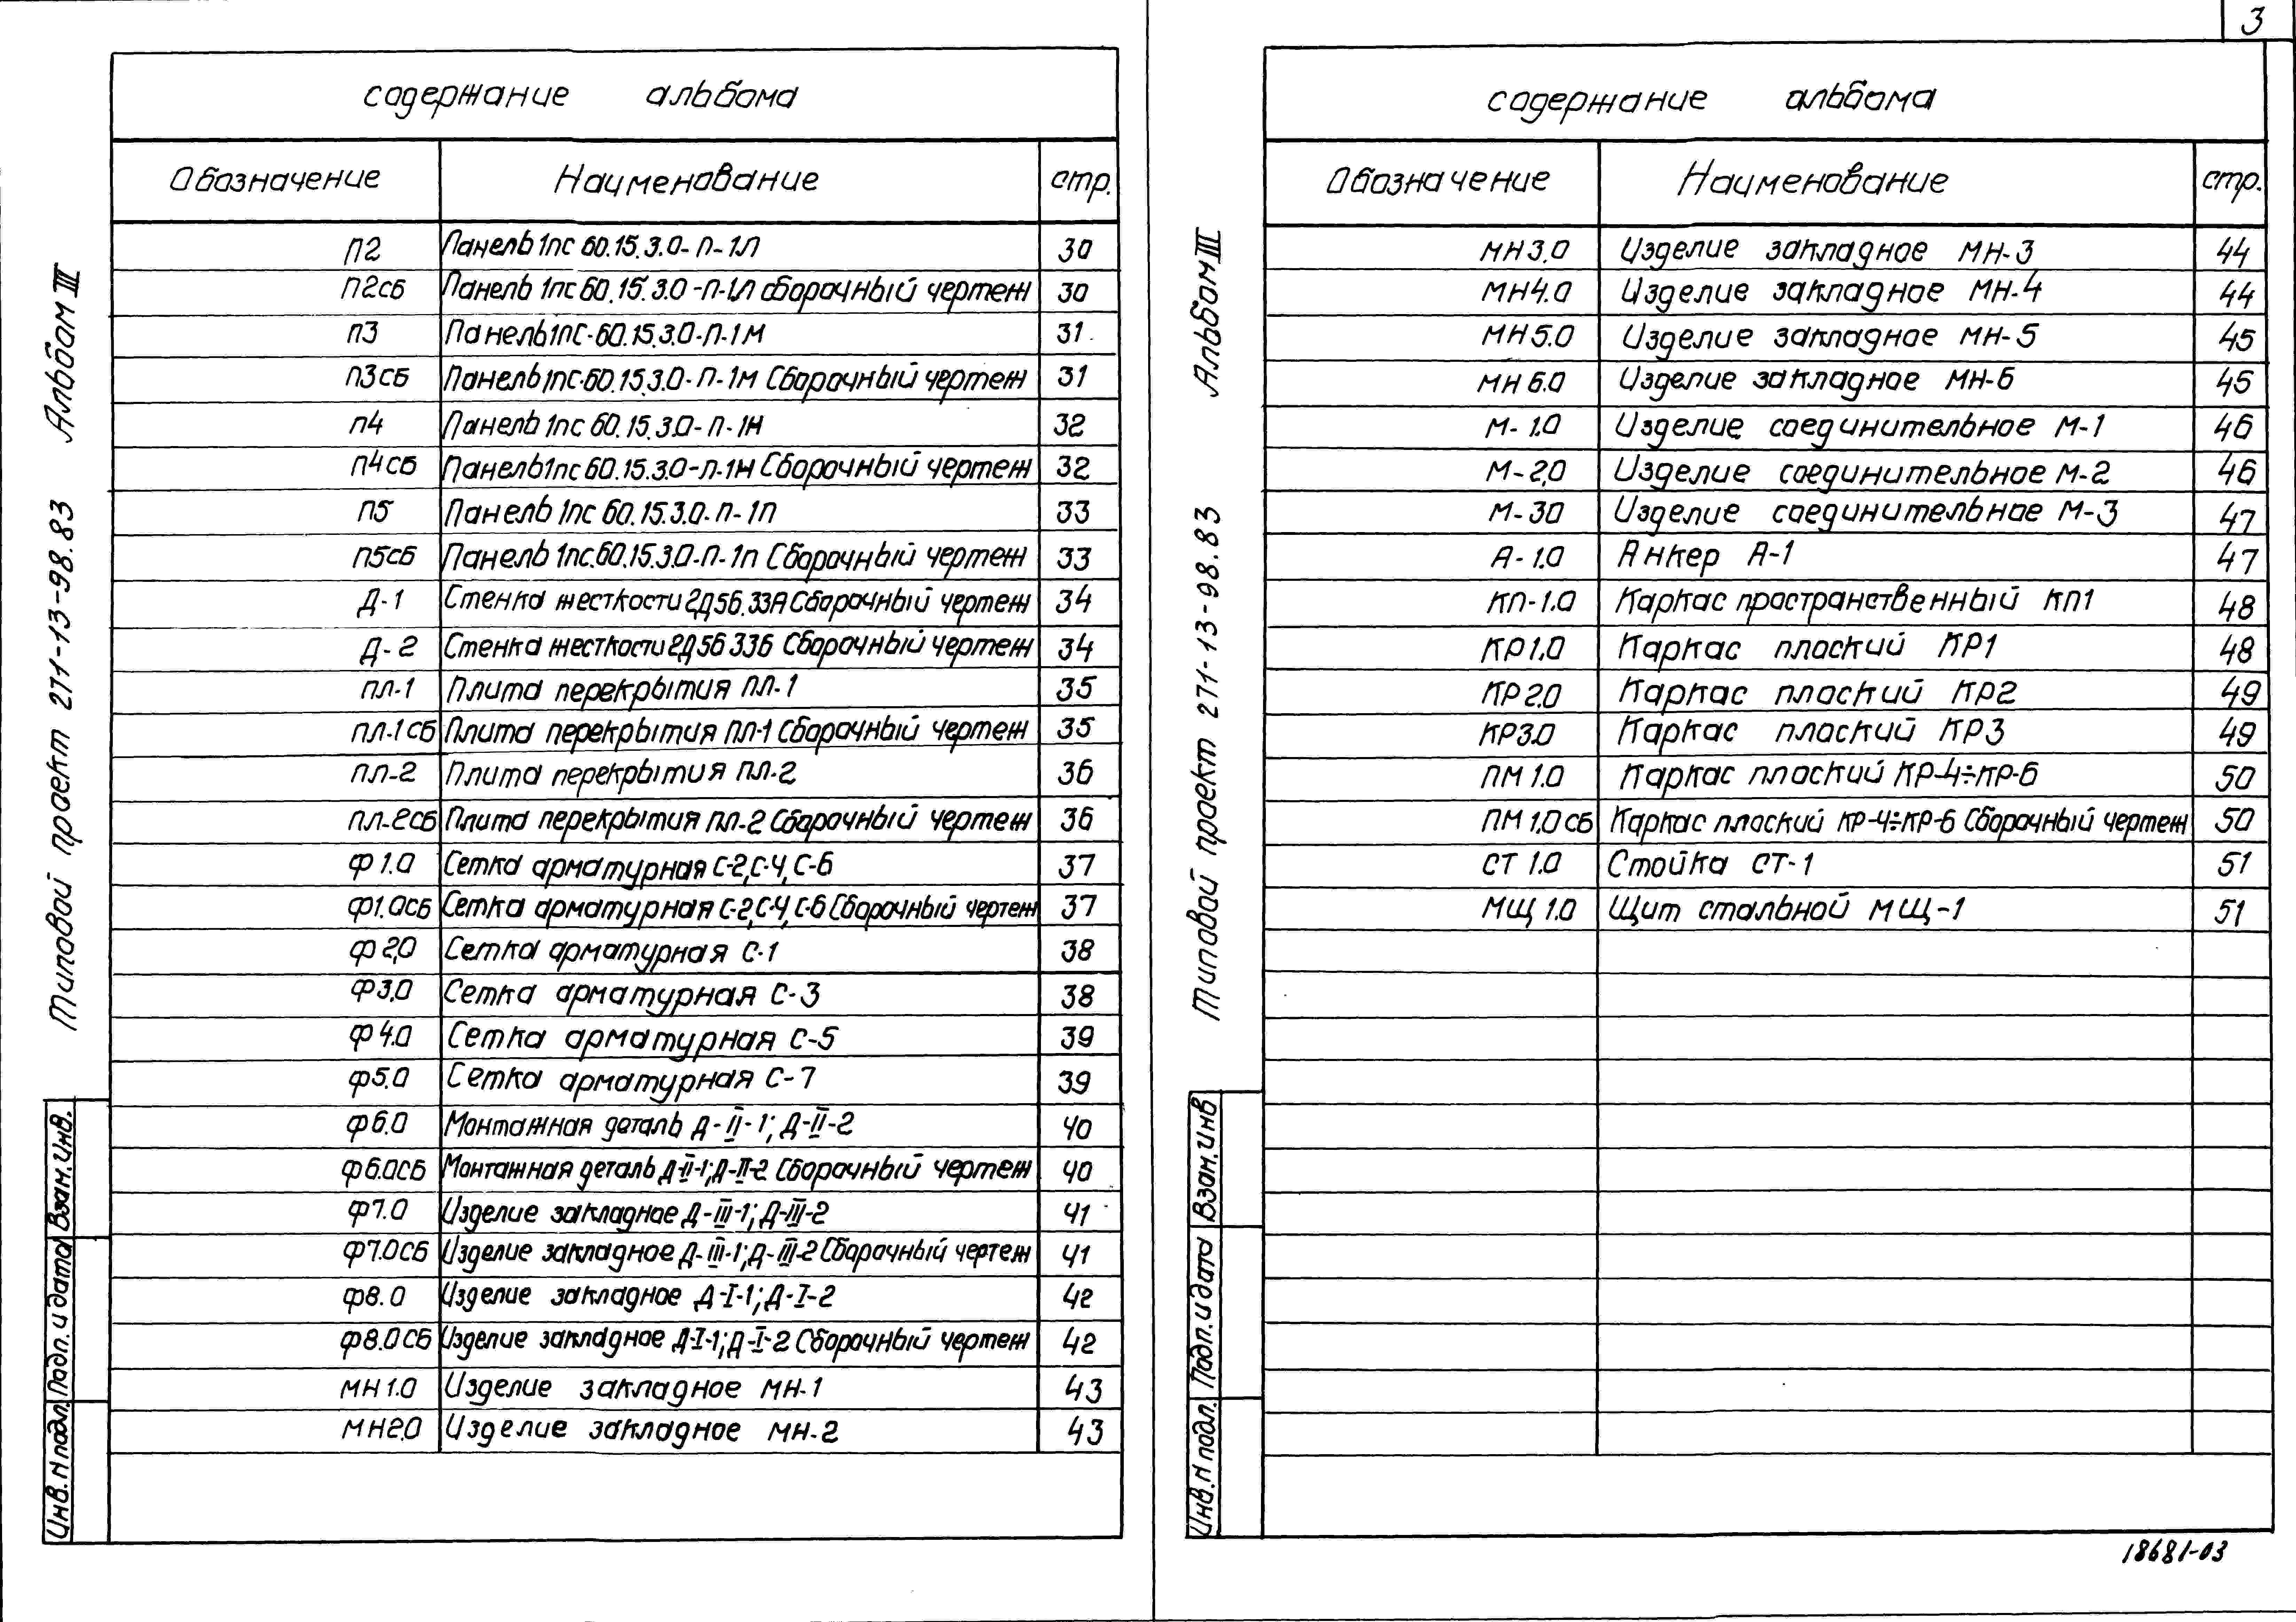 3
содержание альбома
Обозначение Наименование стр.
П2 Панель 1пс 60.15.3.0-П-1Л 30
П2сб Панель 1пс 60.15.3.0-П-1Л сборочный чертеж 30
П3 Панель 1пс-60.15.3.0-П-1М 31
П3сб Панель 1пс-60.15.3.0-П-1М Сборочный чертеж 31
П4 Панель 1пс 60.15.3.0-П-1Н 32
П4сб Панель 1пс 60.15.3.0-П-1Н Сборочный чертеж 32
П5 Панель 1пс 60.15.3.0-П-1П 33
П5сб Панель 1пс.60.15.3.0-П-1П Сборочный чертеж 33
Д-1 Стенка жесткости 2Д56.33А Сборочный чертеж 34
Д-2 Стенка жесткости 2Д56 33б Сборочный чертеж 34
ПЛ-1 Плита перекрытия ПЛ-1 35
ПЛ-1сб Плита перекрытия ПЛ-1 Сборочный чертеж 35
ПЛ-2 Плита перекрытия ПЛ-2 36
ПЛ-2сб Плита перекрытия ПЛ-2 Сборочный чертеж 36
Ф1.0 Сетка арматурная С-2, С-4, С-6 37
Ф1.0сб Сетка арматурная С-2, С-4, С-6 Сборочный чертеж 37
Ф2.0 Сетка арматурная С-1 38
Ф3.0 Сетка арматурная С-3 38
Ф4.0 Сетка арматурная С-5 39
Ф5.0 Сетка арматурная С-7 39
Ф6.0 Монтажная деталь Д-II-1; Д-II-2 40
Ф6.0сб Монтажная деталь Д-II-1; Д-II-2 Сборочный чертеж 40
Ф7.0 Изделие закладное Д-III-1; Д-III-2 41
Ф7.0сб Изделие закладное Д-III-1; Д-III-2 Сборочный чертеж 41
Ф8.0 Изделие закладное Д-I-1; Д-I-2 42
Ф8.0сб Изделие закладное Д-I-1; Д-I-2 Сборочный чертеж 42
МН1.0 Изделие закладное МН-1 43
МН2.0 Изделие закладное МН-2 43
Типовой проект 271-13-98.83 Альбом III
Инв. N подл. Подп. и дата Взам. инв.
содержание альбома
Обозначение Наименование стр.
МН3.0 Изделие закладное МН-3 44
МН4.0 Изделие закладное МН-4 44
МН5.0 Изделие закладное МН-5 45
МН6.0 Изделие закладное МН-6 45
М-1.0 Изделие соединительное М-1 46
М-2.0 Изделие соединительное М-2 46
М-30 Изделие соединительное М-3 47
А-1.0 Анкер А-1 47
КП-1.0 Каркас пространственный КП1 48
КР1.0 Каркас плоский КР1 48
КР2.0 Каркас плоский КР2 49
КР3.0 Каркас плоский КР3 49
ПМ1.0 Каркас плоский КР-4÷КР-6 50
ПМ1.0сб Каркас плоский КР-4÷КР-6 Сборочный чертеж 50
СТ1.0 Стойка СТ-1 51
МЩ1.0 Щит стальной МЩ-1 51
Типовой проект 271-13-98.83 Альбом III
Инв. N подл. Подп. и дата Взам. инв
18681-03